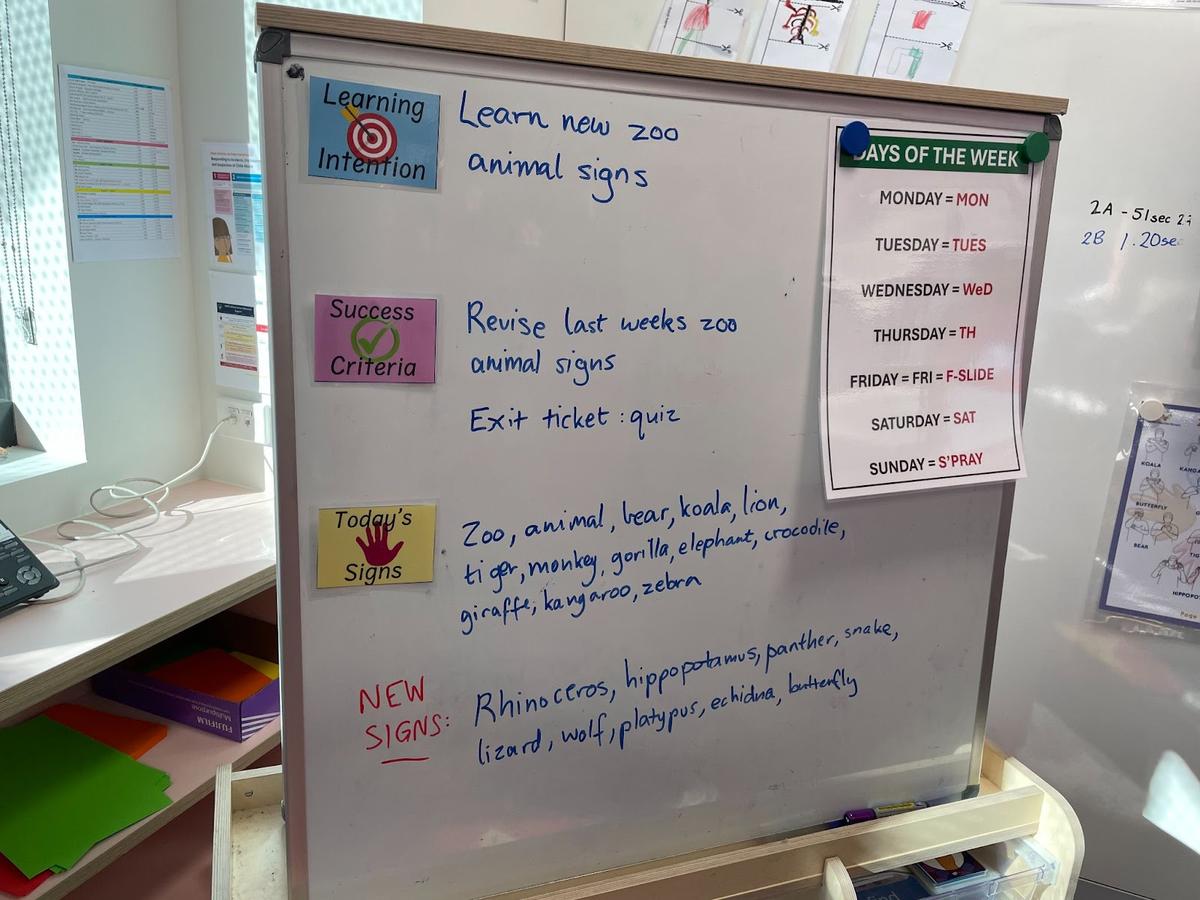 Learning
Intention
Learn new zoo
animal signs
Success
Criteria
Revise last weeks zoo
animal signs
Exit ticket : quiz
Today's
Signs
Zoo, animal, bear, koala, lion,
tiger, monkey, gorilla, elephant, crocodile,
giraffe, kangaroo, zebra
NEW
SIGNS:
Rhinoceros, hippopotamus, panther, snake,
lizard, wolf, platypus, echidna, butterfly
DAYS OF THE WEEK
MONDAY = MON
TUESDAY = TUES
WEDNESDAY = WeD
THURSDAY = TH
FRIDAY = FRI = F-SLIDE
SATURDAY = SAT
SUNDAY = S'PRAY
2A - 51sec
2B 1.20se
KOALA
BUTTERFLY
BEAR
FUJIFILM
Multipurpose